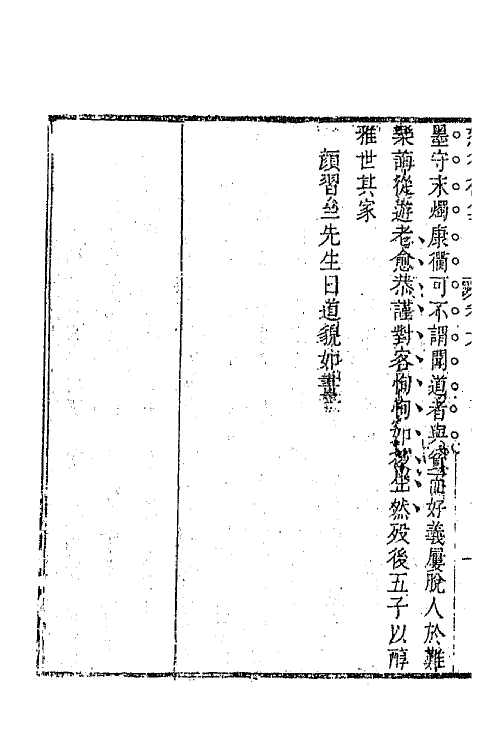 墨守末燭康衢可不謂聞道者與貧而好義屢脫人於難
樂誨從遊老愈恭謹對客恂恂如後生然歿後五子以醇
雅世其家
顏習亝先生曰道貌如畫